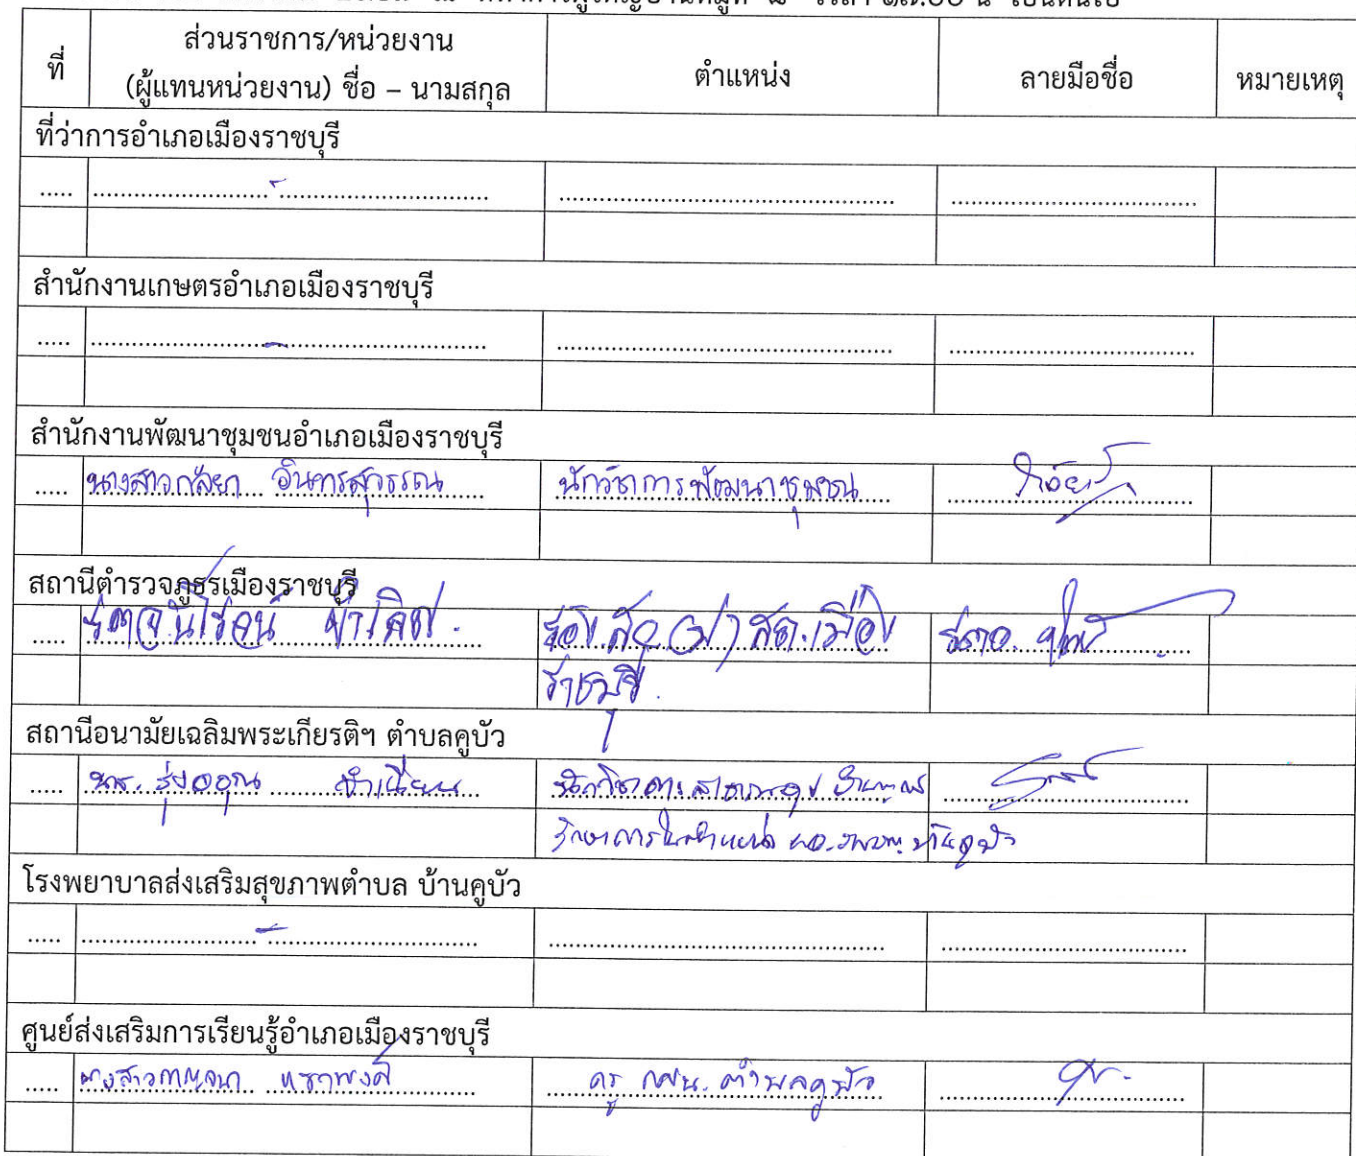 ที่ ส่วนราชการ/หน่วยงาน ตำแหน่ง ลายมือชื่อ หมายเหตุ
(ผู้แทนหน่วยงาน) ชื่อ – นามสกุล
ที่ว่าการอำเภอเมืองราชบุรี
สำนักงานเกษตรอำเภอเมืองราชบุรี
สำนักงานพัฒนาชุมชนอำเภอเมืองราชบุรี
นางสาวกัลยา อินทรสุวรรณ นักวิชาการพัฒนาชุมชน
สถานีตำรวจภูธรเมืองราชบุรี
รอง สว.(ป) สภ.เมือง
ราชบุรี
สถานีอนามัยเฉลิมพระเกียรติฯ ตำบลคูบัว
นส. รุ่งอรุณ นักวิชาการสาธารณสุขชำนาญการ
รักษาการในตำแหน่ง ผอ.รพสต.บ้านคูบัว
โรงพยาบาลส่งเสริมสุขภาพตำบล บ้านคูบัว
ศูนย์ส่งเสริมการเรียนรู้อำเภอเมืองราชบุรี
นางสาวกาญจนา ครู กศน. ตำบลคูบัว